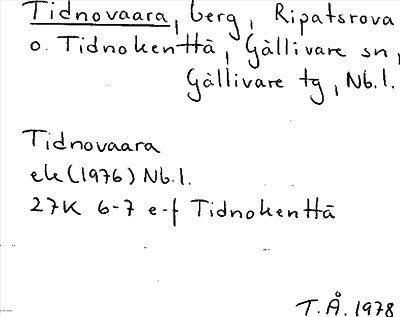 Tidnovaara, berg, Ripatsrova
o. Tidnokenttä, Gällivare sn,
Gällivare tg, Nb.l.
Tidnovaara
ek (1976) Nb.l.
27K 6-7 e-f Tidnokenttä
T.Å. 1978